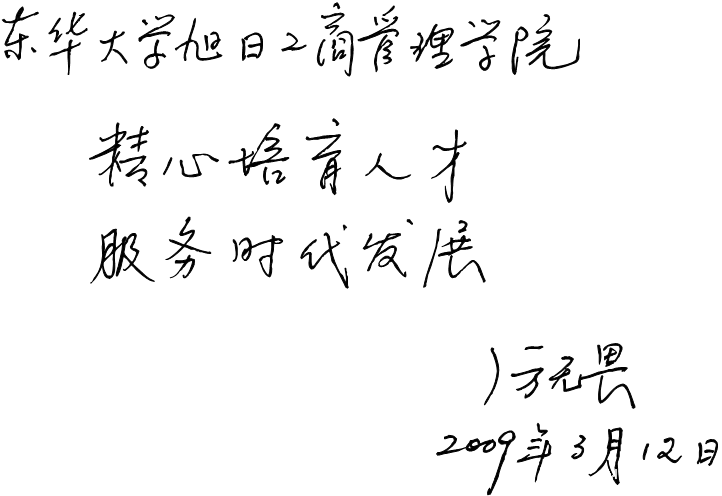 东华大学旭日工商管理学院
精心培育人才
服务时代发展
方无畏
2009年3月12日